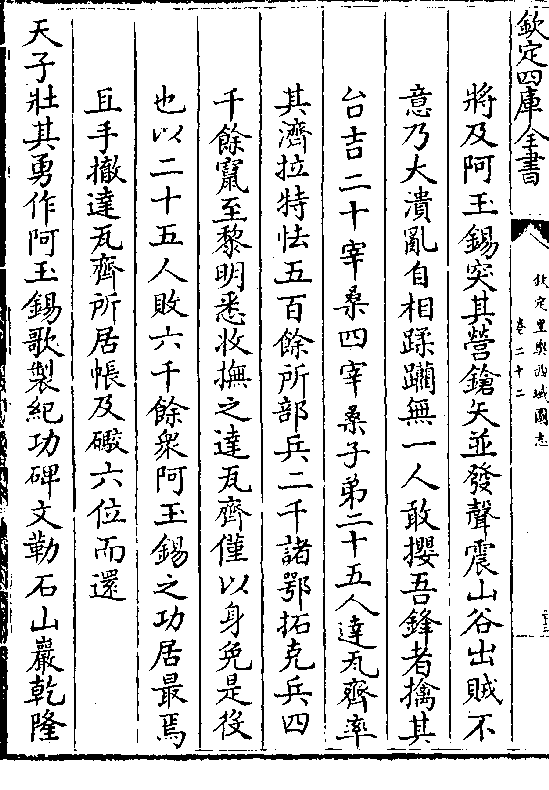 欽定四庫全書
欽定皇輿西域圖志
卷二十二
將及阿玉錫突其營鎗矢並發聲震山谷出賊不
意乃大潰亂自相蹂躪無一人敢攖吾鋒者擒其
台吉二十宰桑四宰桑子弟二十五人達瓦齊率
其濟拉特怯五百餘所部兵二千諸鄂拓克兵四
千餘竄至黎明悉收撫之達瓦齊僅以身免是役
也以二十五人敗六千餘衆阿玉錫之功居最焉
且手撤達瓦齊所居帳及礮六位而還
天子壯其勇作阿玉錫歌製紀功碑文勒石山巖乾隆